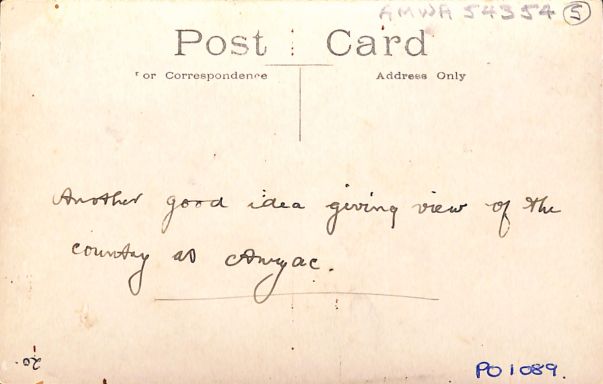 AMWA 54354 5
Post Card
For Correspondence Address Only
Another good idea giving view of the
country at Anzac.
20.
PO 1089.